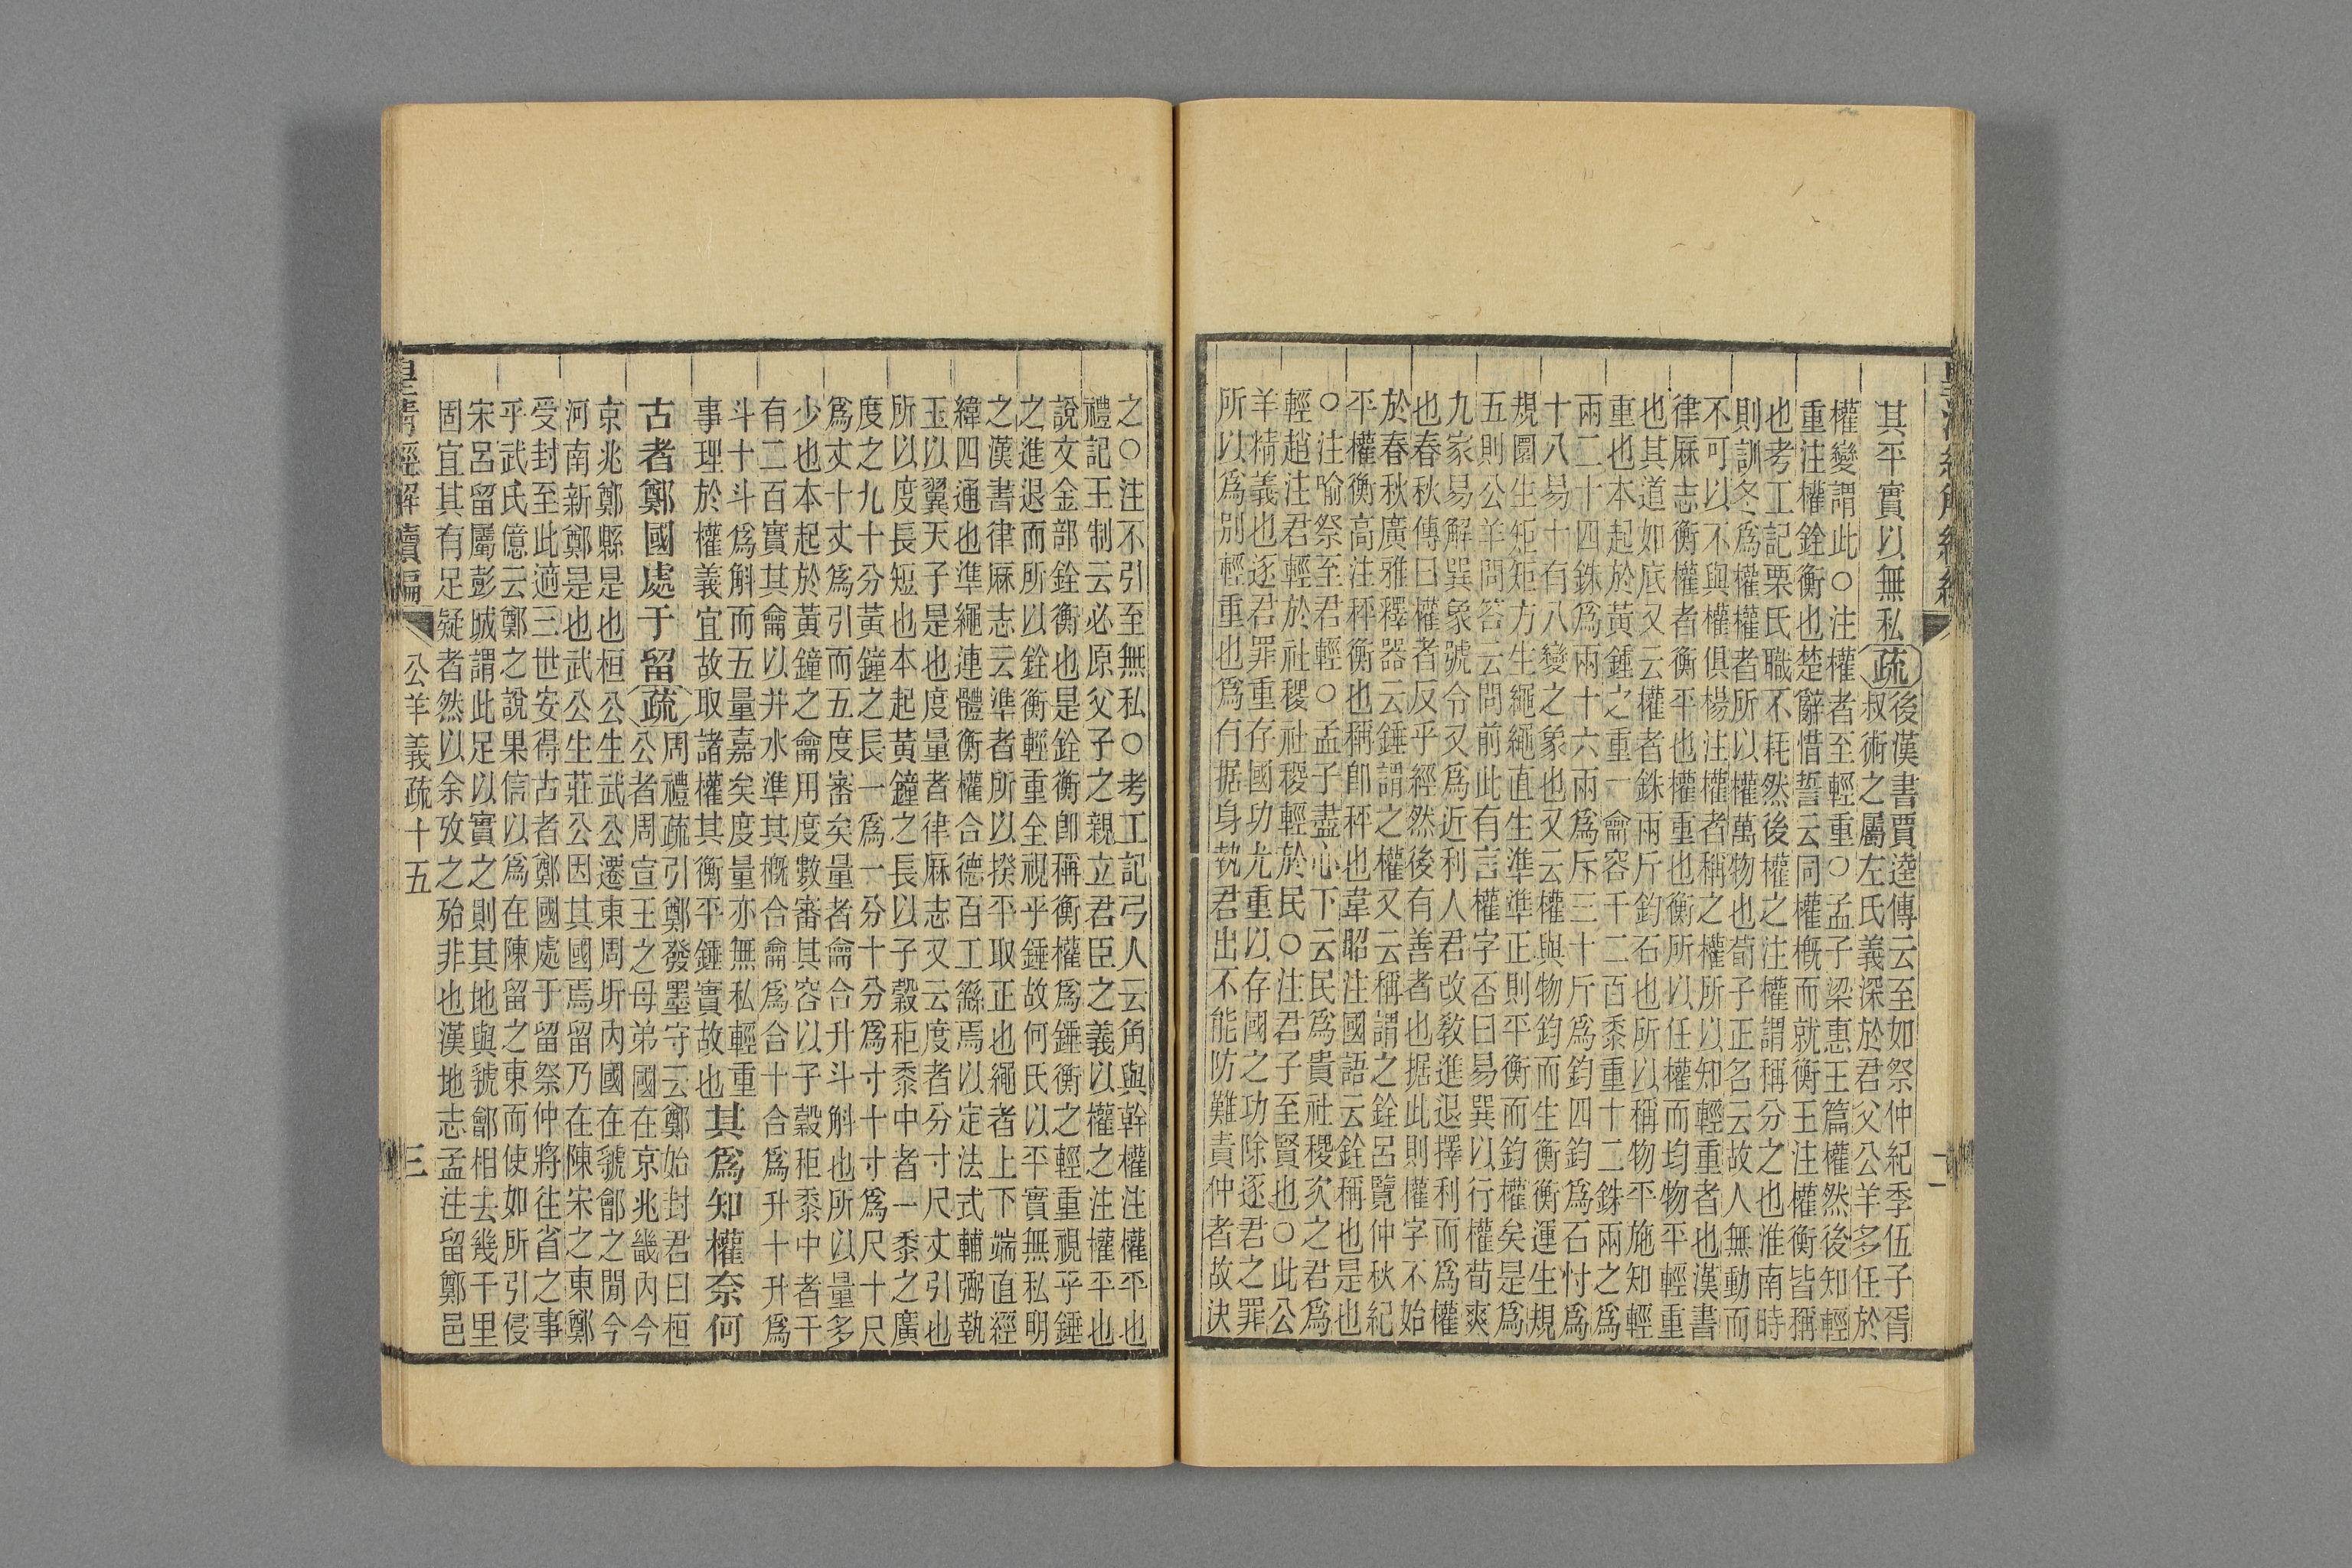 其平實以無私疏後漢書賈逵傳云至如祭仲紀季伍子胥
叔術之屬左氏義深於君父公羊多任於
權變謂此○注權者至輕重○孟子梁惠王篇權然後知輕
重注權銓衡也楚辭惜誓云同權槪而就衡王注權衡皆稱
也考工記栗氏職不耗然後權之注權謂稱分之也淮南時
則訓冬爲權權者所以權萬物也荀子正名云故人無動而
不可以不與權俱楊注權者稱之權所以知輕重者也漢書
律厤志衡權者衡平也權重也衡所以任權而均物平輕重
也其道如底又云權者銖兩斤鈞石也所以稱物平施知輕
重也本起於黃鍾之重一龠容千二百黍重十二銖兩之爲
兩二十四銖爲兩十六兩爲斤三十斤爲鈞四鈞爲石忖爲
十八易十有八變之象也又云權與物鈞而生衡衡運生規
規圜生矩矩方生繩繩直生準準正則平衡而鈞權矣是爲
五則公羊問答云問前此有言權字否曰易巽以行權荀爽
九家易解巽象號令又爲近利人君改敎進退擇利而爲權
也春秋傳曰權者反乎經然後有善者也据此則權字不始
於春秋廣雅釋器云錘謂之權又云稱謂之銓呂覽仲秋紀
平權衡高注秤衡也稱卽秤也韋昭注國語云銓稱也是也
○注喻祭至君輕○孟子盡心下云民爲貴社稷次之君爲
輕趙注君輕於社稷社稷輕於民○注君子至賢也○此公
羊精義也逐君罪重存國功尤重以存國之功除逐君之罪
所以爲別輕重也爲冇据身執君出不能防難責仲者故決
之○注不引至無私○考工記弓人云角與幹權注權平也
禮記王制云必原父子之親立君臣之義以權之注權平也
說文金部銓衡也是銓衡卽稱衡權爲錘衡之輕重視乎錘
之進退而所以銓衡輕重全視乎錘故何氏以平實無私明
之漢書律厤志云準者所以揆平取正也繩者上下端直經
緯四通也準繩連體衡權合德百工繇焉以定法式輔弼執
玉以翼天子是也度量者律厤志又云度者分寸尺丈引也
所以度長短也本起黃鐘之長以子穀秬黍中者一黍之廣
度之九十分黃鐘之長一爲一分十分爲寸十寸爲尺十尺
爲丈十丈爲引而五度審矣量者龠合升斗斛也所以量多
少也本起於黃鐘之龠用度數審其容以子穀秬黍中者千
有二百實其龠以井水準其槪合龠爲合十合爲升十升爲
斗十斗爲斛而五量嘉矣度量亦無私輕重
事理於權義宜故取諸權其衡平錘實故也其爲知權奈何
古者鄭國處于留疏周禮疏引鄭發墨守云鄭始封君曰桓
公者周宣王之母弟國在京兆畿內今
京兆鄭縣是也桓公生武公遷東周圻內國在虢鄶之閒今
河南新鄭是也武公生莊公因其國焉留乃在陳宋之東鄭
受封至此適三世安得古者鄭國處于留祭仲將往省之事
乎武氏億云鄭之說果信以爲在陳留之東而使如所引侵
宋呂留屬彭城謂此足以實之則其地與虢鄶相去幾千里
固宜其有足疑者然以余攷之殆非也漢地志孟注留鄭邑
皇清經解續編
公羊義疏十五
三